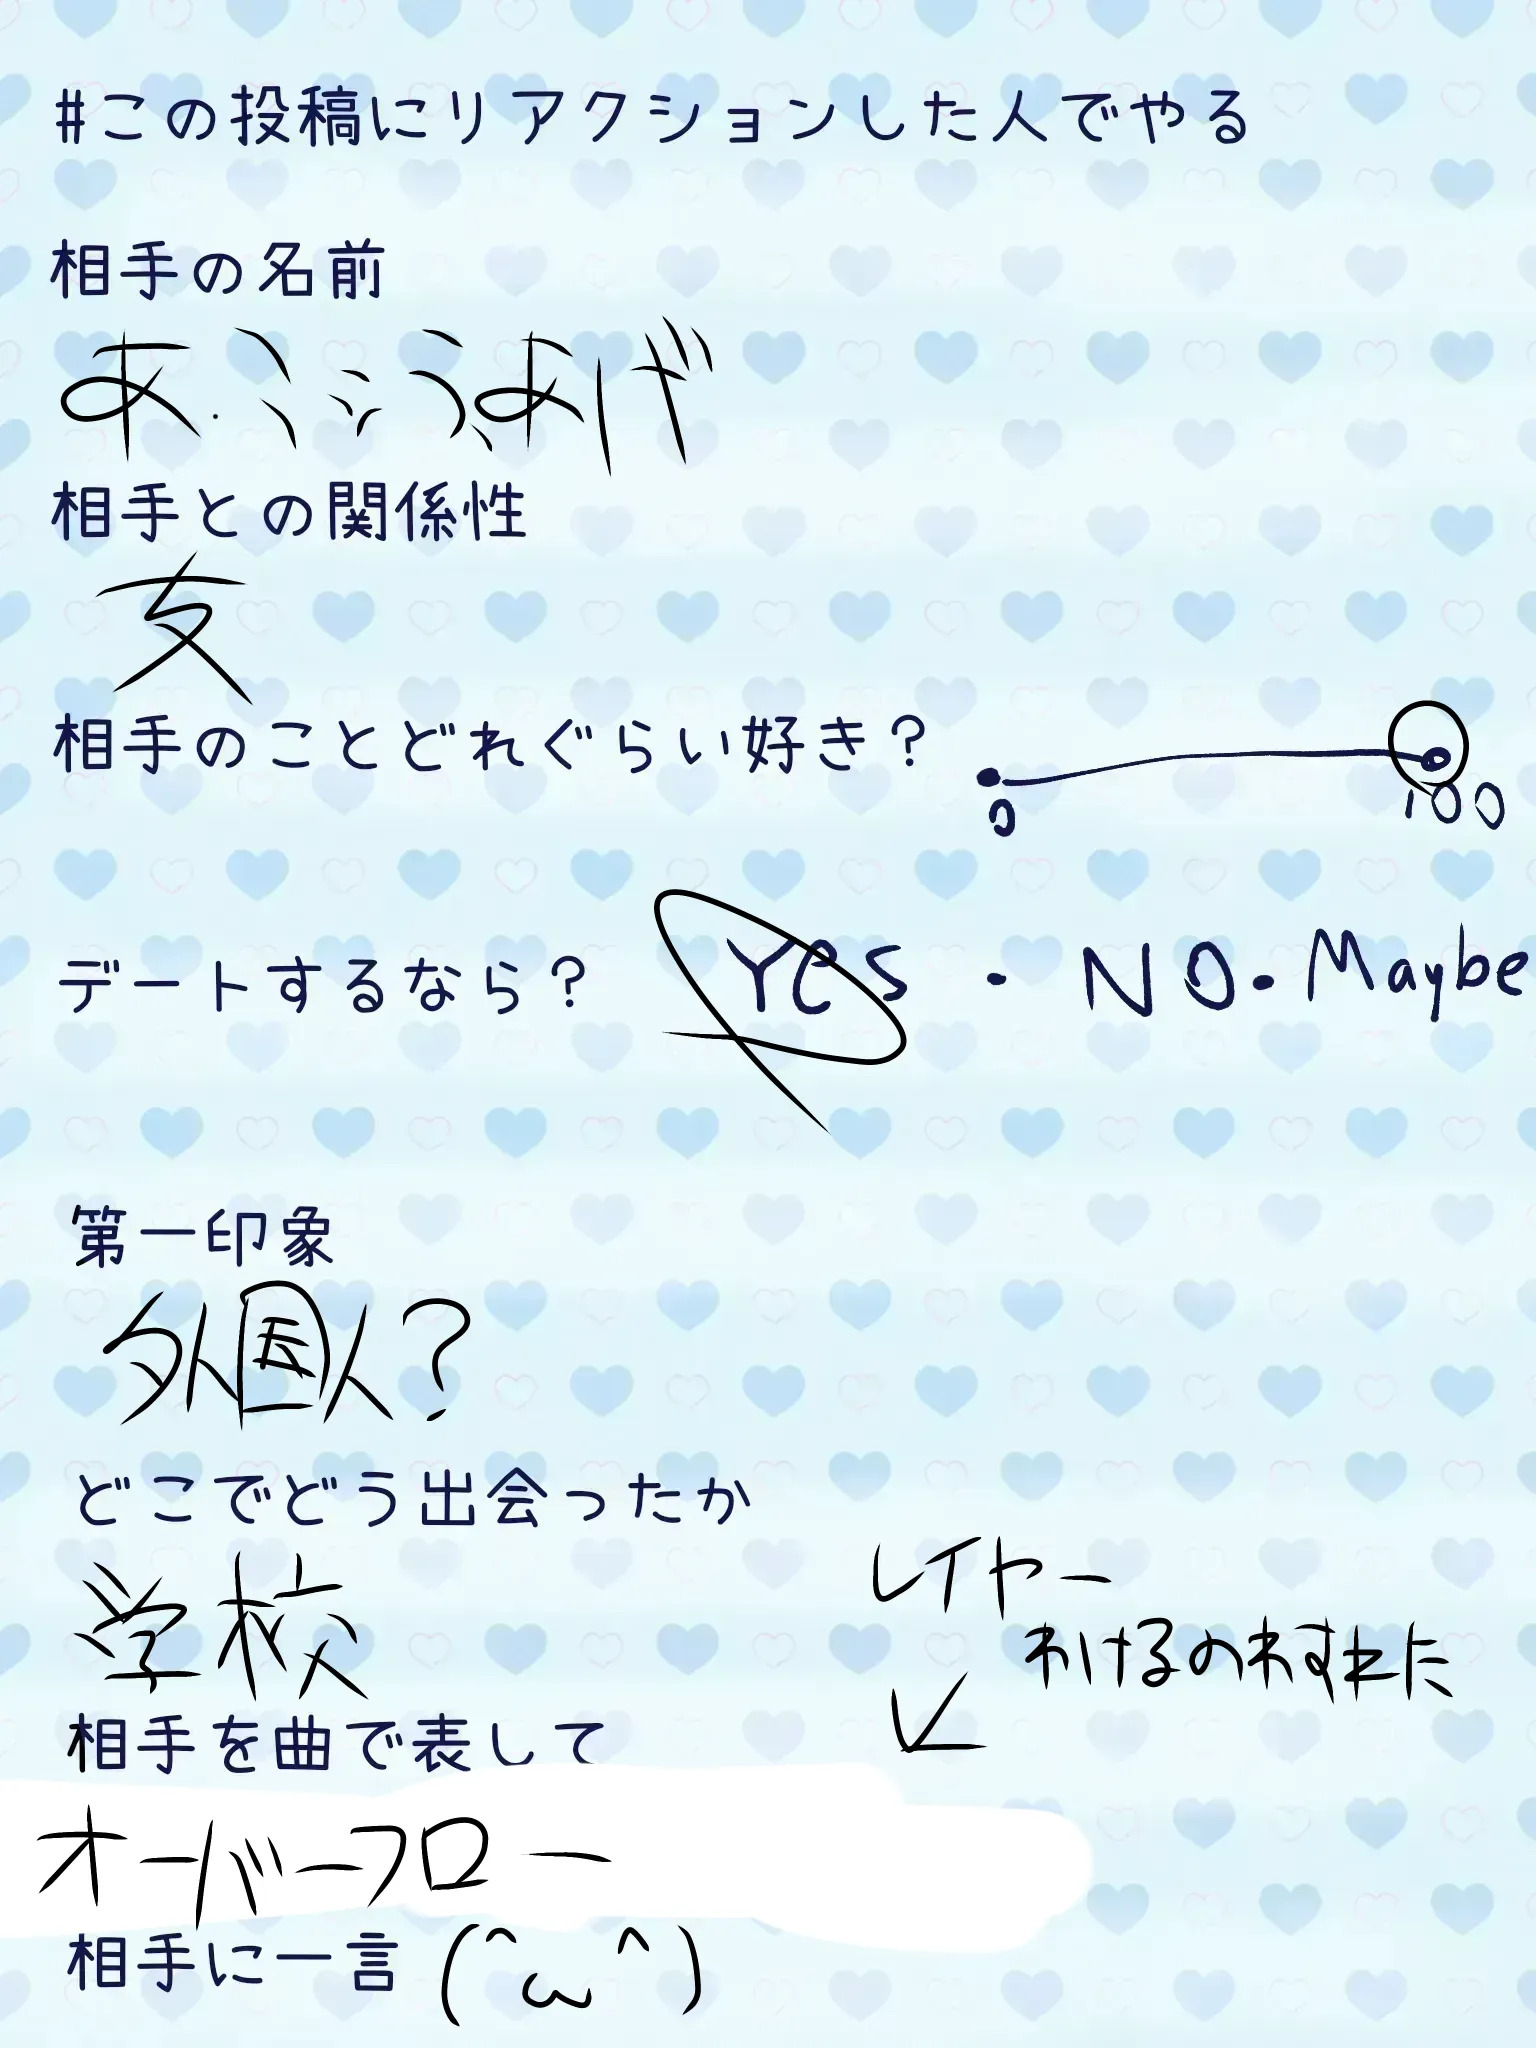 #この投稿にリアクションした人でやる
相手の名前
相手との関係性
友
相手のことどれぐらい好き?
0 100
デートするなら? Yes・NO・Maybe
第一印象
外国人?
どこでどう出会ったか
学校
レイヤー
わけるのわすれた
相手を曲で表して
オーバーフロー
相手に一言 (^ω^)